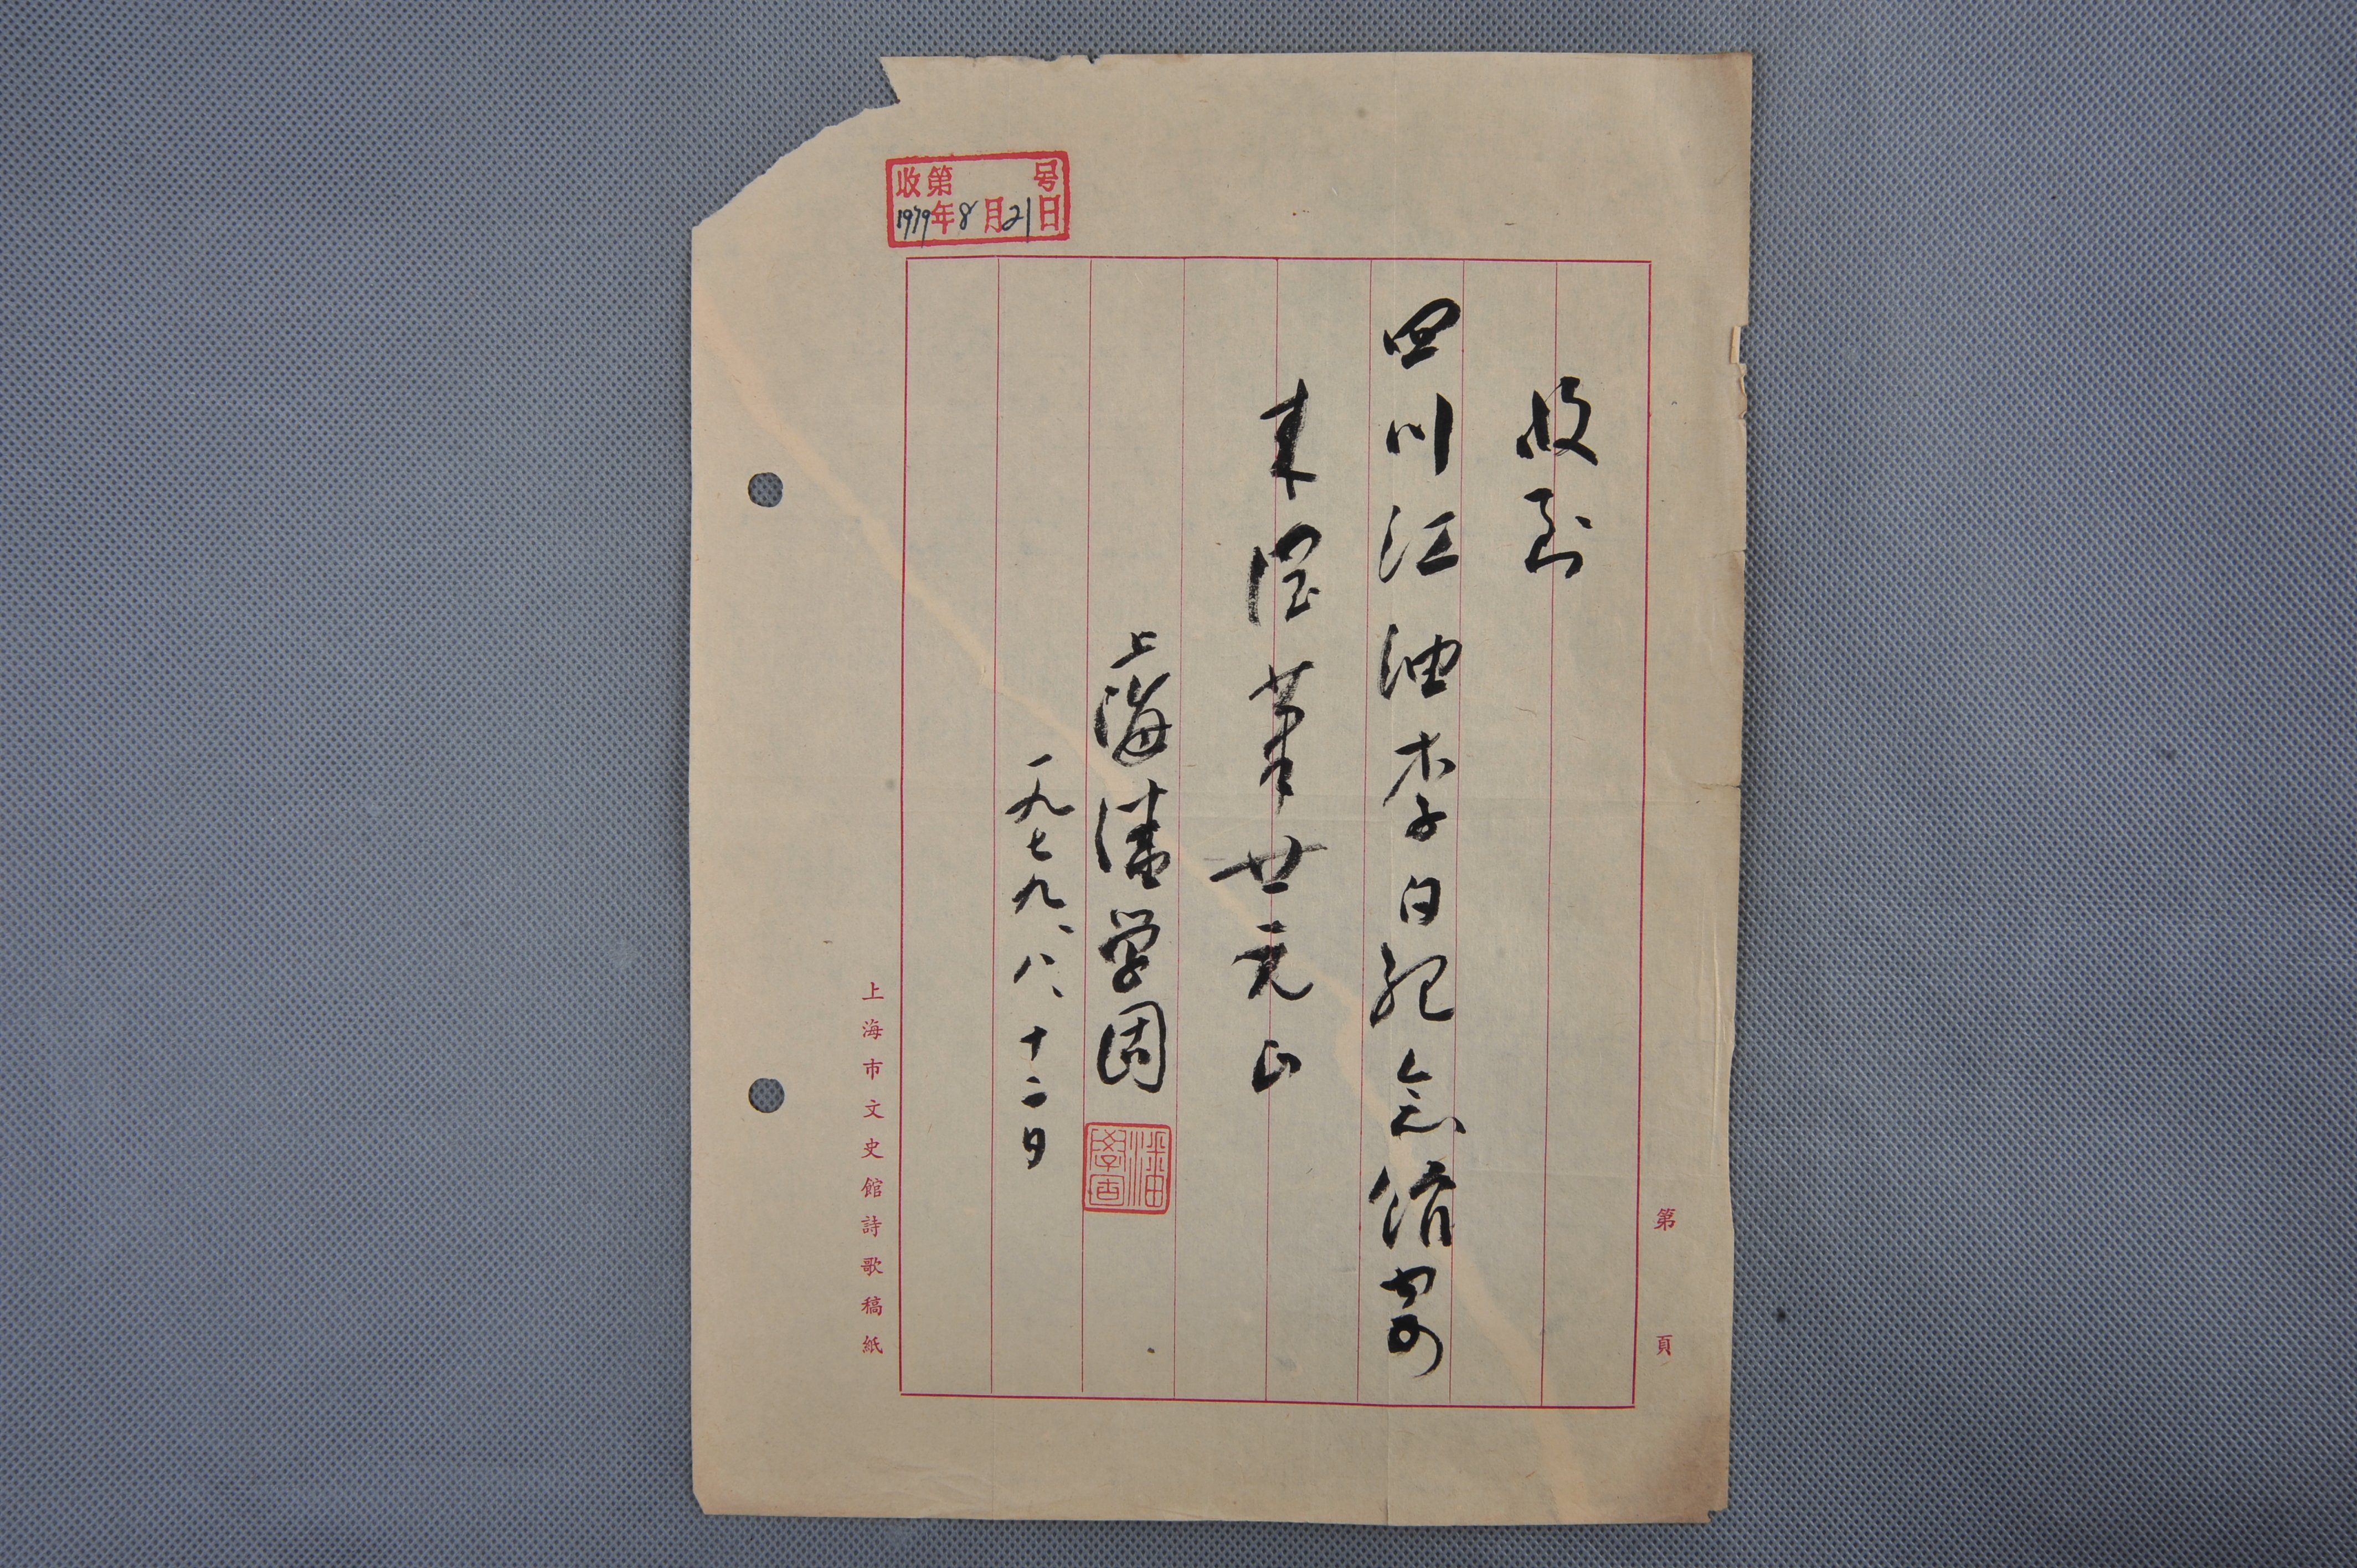 收第 号
1979年8月21日
第 頁
收到
四川江油李白纪念馆寄
来润筆廿元正
上海潘学固
潘學固
一九七九、八、十二日
上海市文史館詩歌稿紙